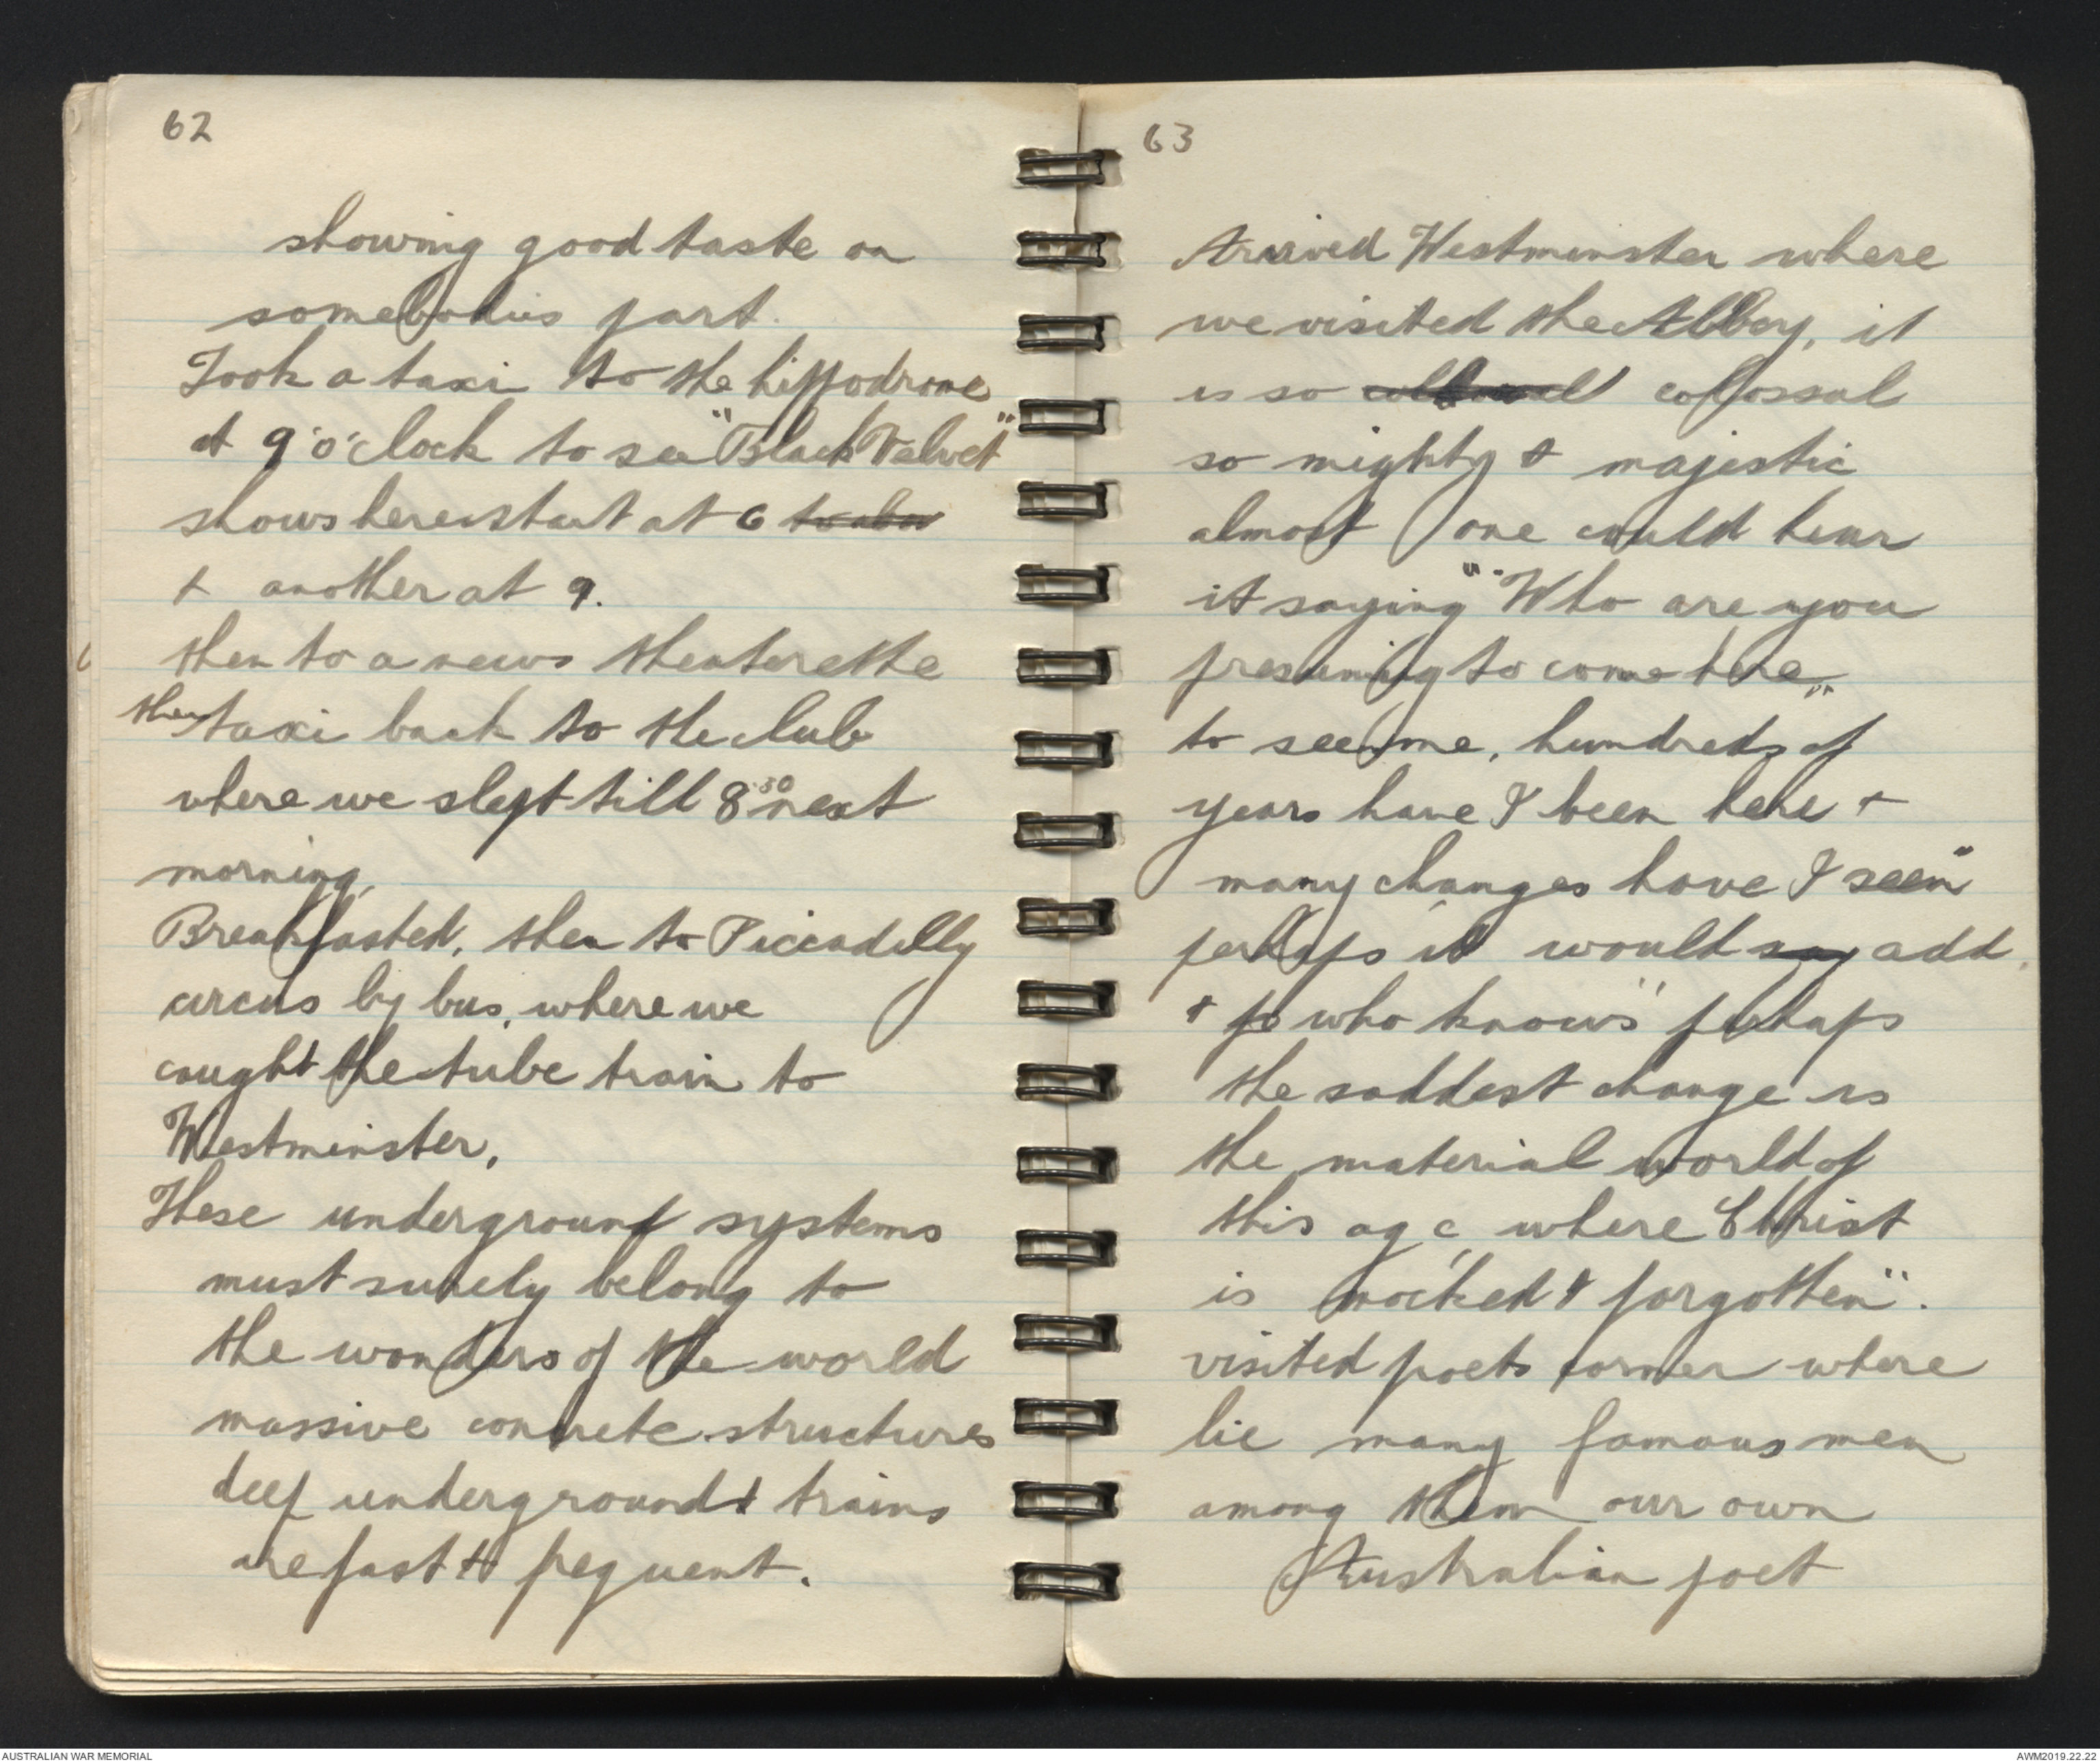 62
showing good taste on
somebodies part.
Took a taxi to the hippodrome
at 9 o'clock to see "Black Velvet"
shows here start at 6
+ another at 9.
then to a news theaterette
then taxi back to the club
where we slept till 8.30 next
morning,
Breakfasted, then to Piccadilly
circus by bus, where we
caught the tube train to
Westminster,
These underground systems
must surely belong to
the wonders of the world
massive concrete structures
deep underground & trains
are fast & frequent.
63
Arrived Westminster where
we visited the Abbey, it
is so colossal
so mighty & majestic
almost one could hear
it saying "Who are you
presuming to come here"
to see me, hundreds of
years have I been here +
many changes have I seen"
perhaps it would say add,
+ who knows" perhaps
the saddest change is
the material world of
this age where Christ
is mocked & forgotten".
visited poets corner where
lie many famous men
among them our own
Australian poet
AUSTRALIAN WAR MEMORIAL
AWM2019.22.22